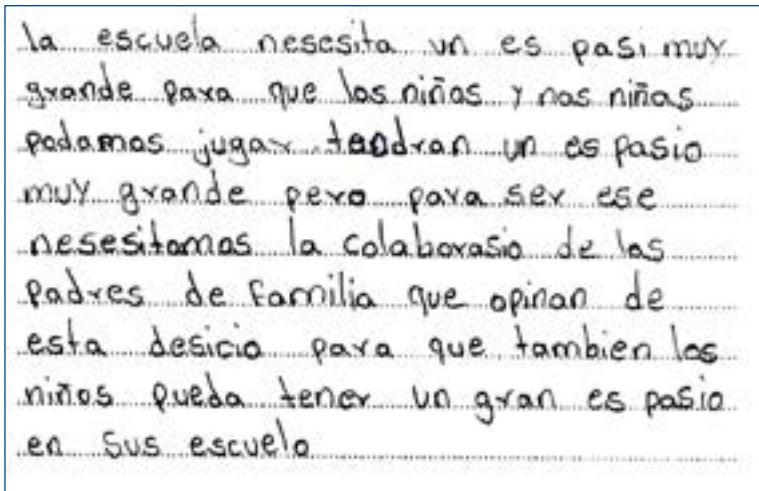 la escuela nescsita un es pasi muy
grande para que los niños y nos niñas
podamos jugar tendran un es pasio
muy grande pero para ser ese
nesesitamos la colaborasio de los
padres de familia que opinan de
esta desicio para que tambien los
niños pueda tener un gran es pasio
en sus escuelo